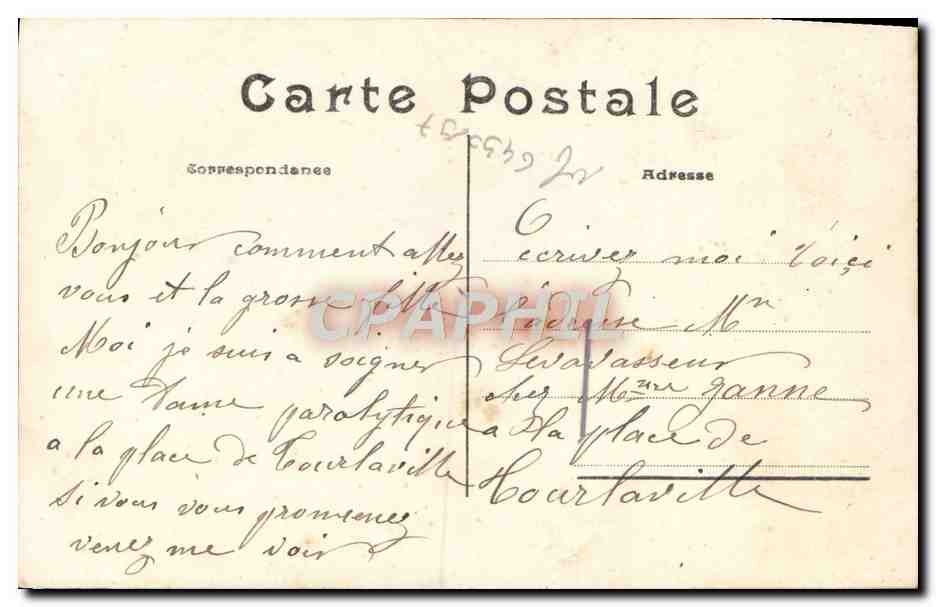 Carte Postale
Correspondance
Adresse
Bonjour comment allez
vous et la grosse fille
Moi je suis a soigner
une dame paralytique
a la place de Tourlaville
si vous vous promenez
venez me voir
Ecrivez moi voiçi
l'adresse Mr
Levavasseur
chez Mme Janne
a la place de
Tourlaville
CPAPHIL